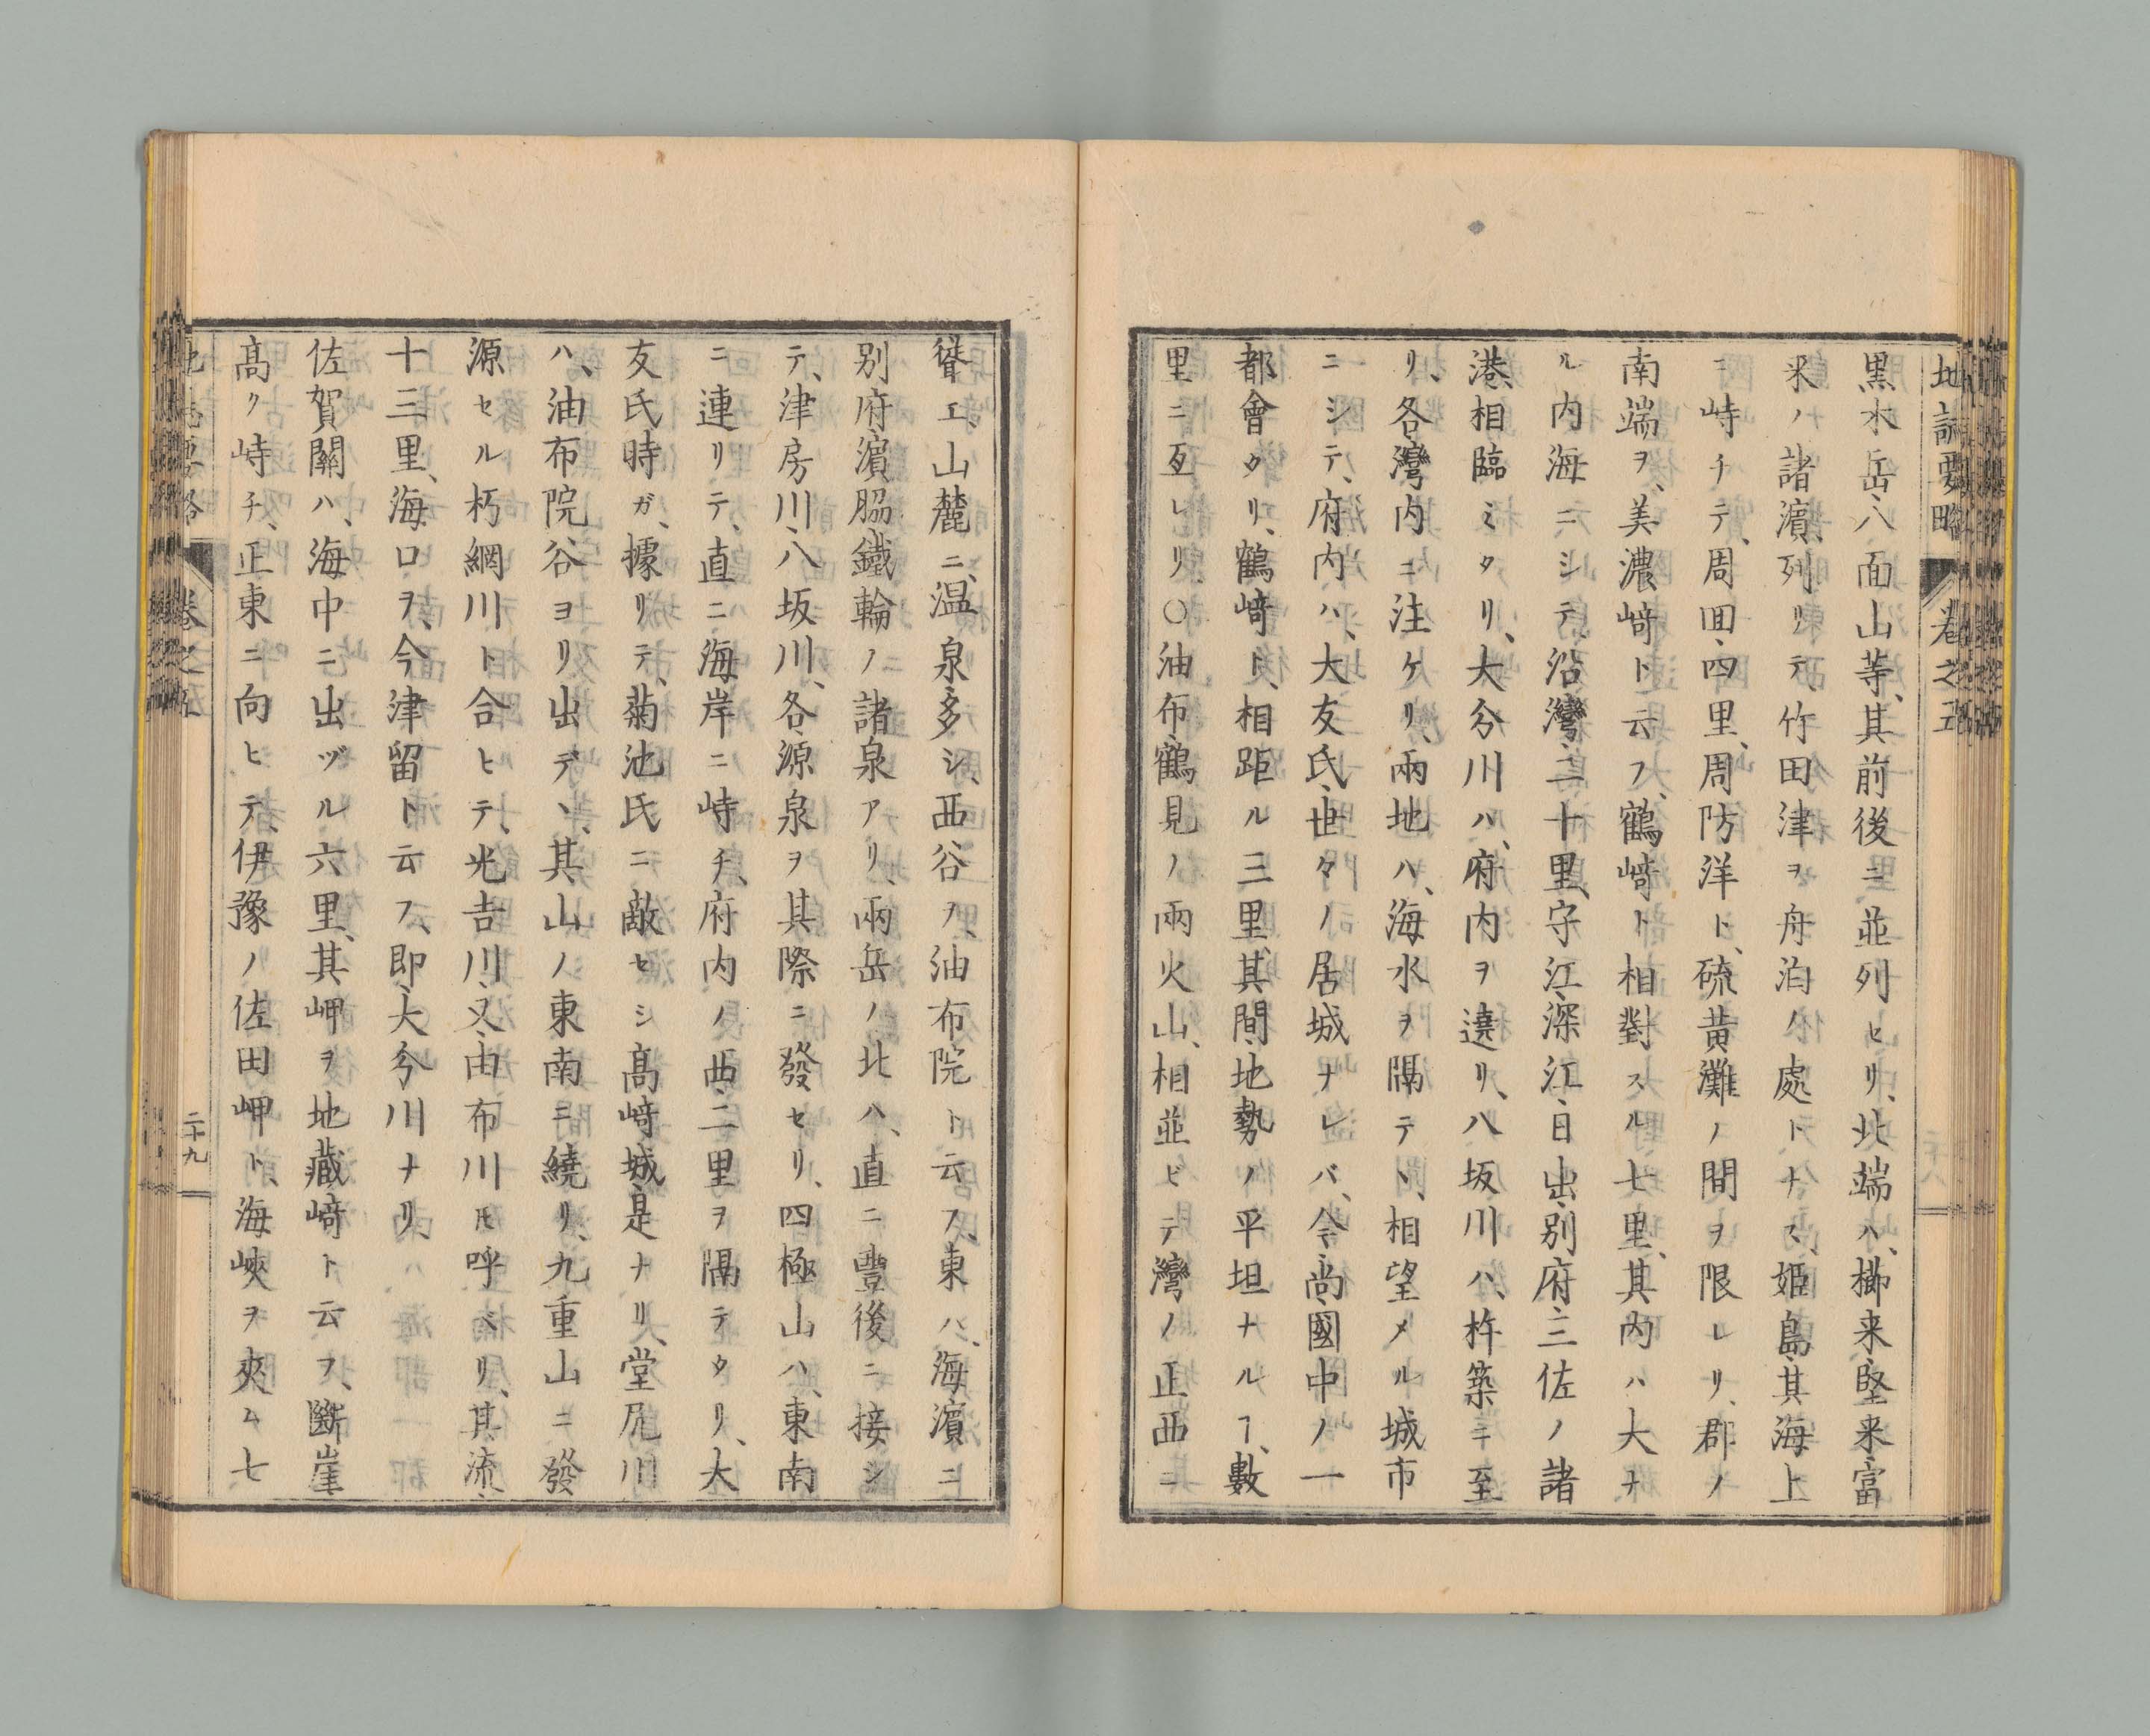 地誌要略 卷之五
黒木岳、八面山等、其前後ニ並列セリ、北端ハ、櫛来、堅来、富
来ノ諸濱、列リテ、竹田津ヲ舟泊ノ處トナス、姫島、其海上
ニ峙チテ、周囬四里、周防洋ト、硫黄灘ノ間ヲ限レリ、郡ノ
南端ヲ、美濃﨑ト云フ、鶴﨑ト相對スル七里、其内ハ大ナ
ル内海ニシテ、沿灣二十里、守江、深江、日出、別府、三佐ノ諸
港、相臨ミタリ、大分川ハ、府内ヲ遶リ、八坂川ハ、杵築ニ至
リ、各灣内ニ注ケリ、兩地ハ、海水ヲ隔テヽ、相望メル城市
ニシテ、府内ハ、大友氏、世々ノ居城ナレバ、今尚國中ノ一
都會タリ、鶴﨑ト、相距ル三里、其間、地勢ノ平坦ナルヿ、數
里ニ亙レリ、○油布、鶴見ノ兩火山、相並ビテ灣ノ正西ニ
聳エ、山麓ニ温泉多シ、西谷ヲ、油布院ト云フ、東ハ、海濱ニ
別府、濵脇、鐵輪ノ諸泉アリ、兩岳ノ北ハ、直ニ豐後ニ接シ
テ、津房川、八坂川、各源泉ヲ其際ニ發セリ、四極山ハ、東南
ニ連リテ、直ニ海岸ニ峙チ、府内ノ西、二里ヲ隔テタリ、大
友氏時ガ、據リテ、菊池氏ニ敵セシ高﨑城是ナリ、堂尻川
ハ、油布院谷ヨリ出デヽ、其山ノ東南ニ繞リ、九重山ニ發
源セル朽網川ト合ヒテ、光吉川、又、由布川ㇳモ呼ベリ、其流、
十三里、海口ヲ、今津留ト云フ、即、大分川ナリ、
佐賀關ハ、海中ニ出ヅル六里、其岬ヲ地藏﨑ト云フ、斷崖
高ク峙チ、正東ニ向ヒテ、伊豫ノ佐田岬ト、海峽ヲ夾ム七
二十九